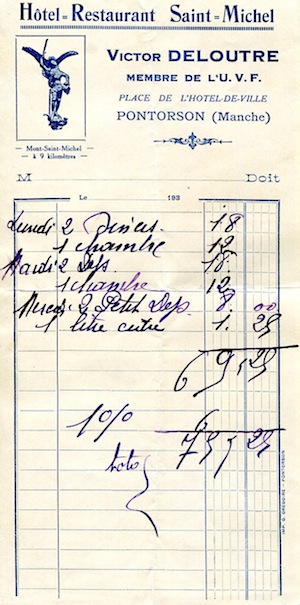 Hôtel=Restaurant Saint=Michel
VICTOR DELOUTRE
MEMBRE DE L'U.V.F.
PLACE DE L'HOTEL-DE-VILLE
PONTORSON (Manche)
— Mont-Saint-Michel —
à 9 kilomètres
M Doit
Le 193
Lundi 2 Diners. 18
1 chambre 12
Mardi 2 Dej. 18.
1 chambre 12
Mercredi 2 Petit Dej. 8. 00
1 litre cidre 1. 25
69,25
10% 6
75,25
IMP. G. GREGOIRE - PONTORSON